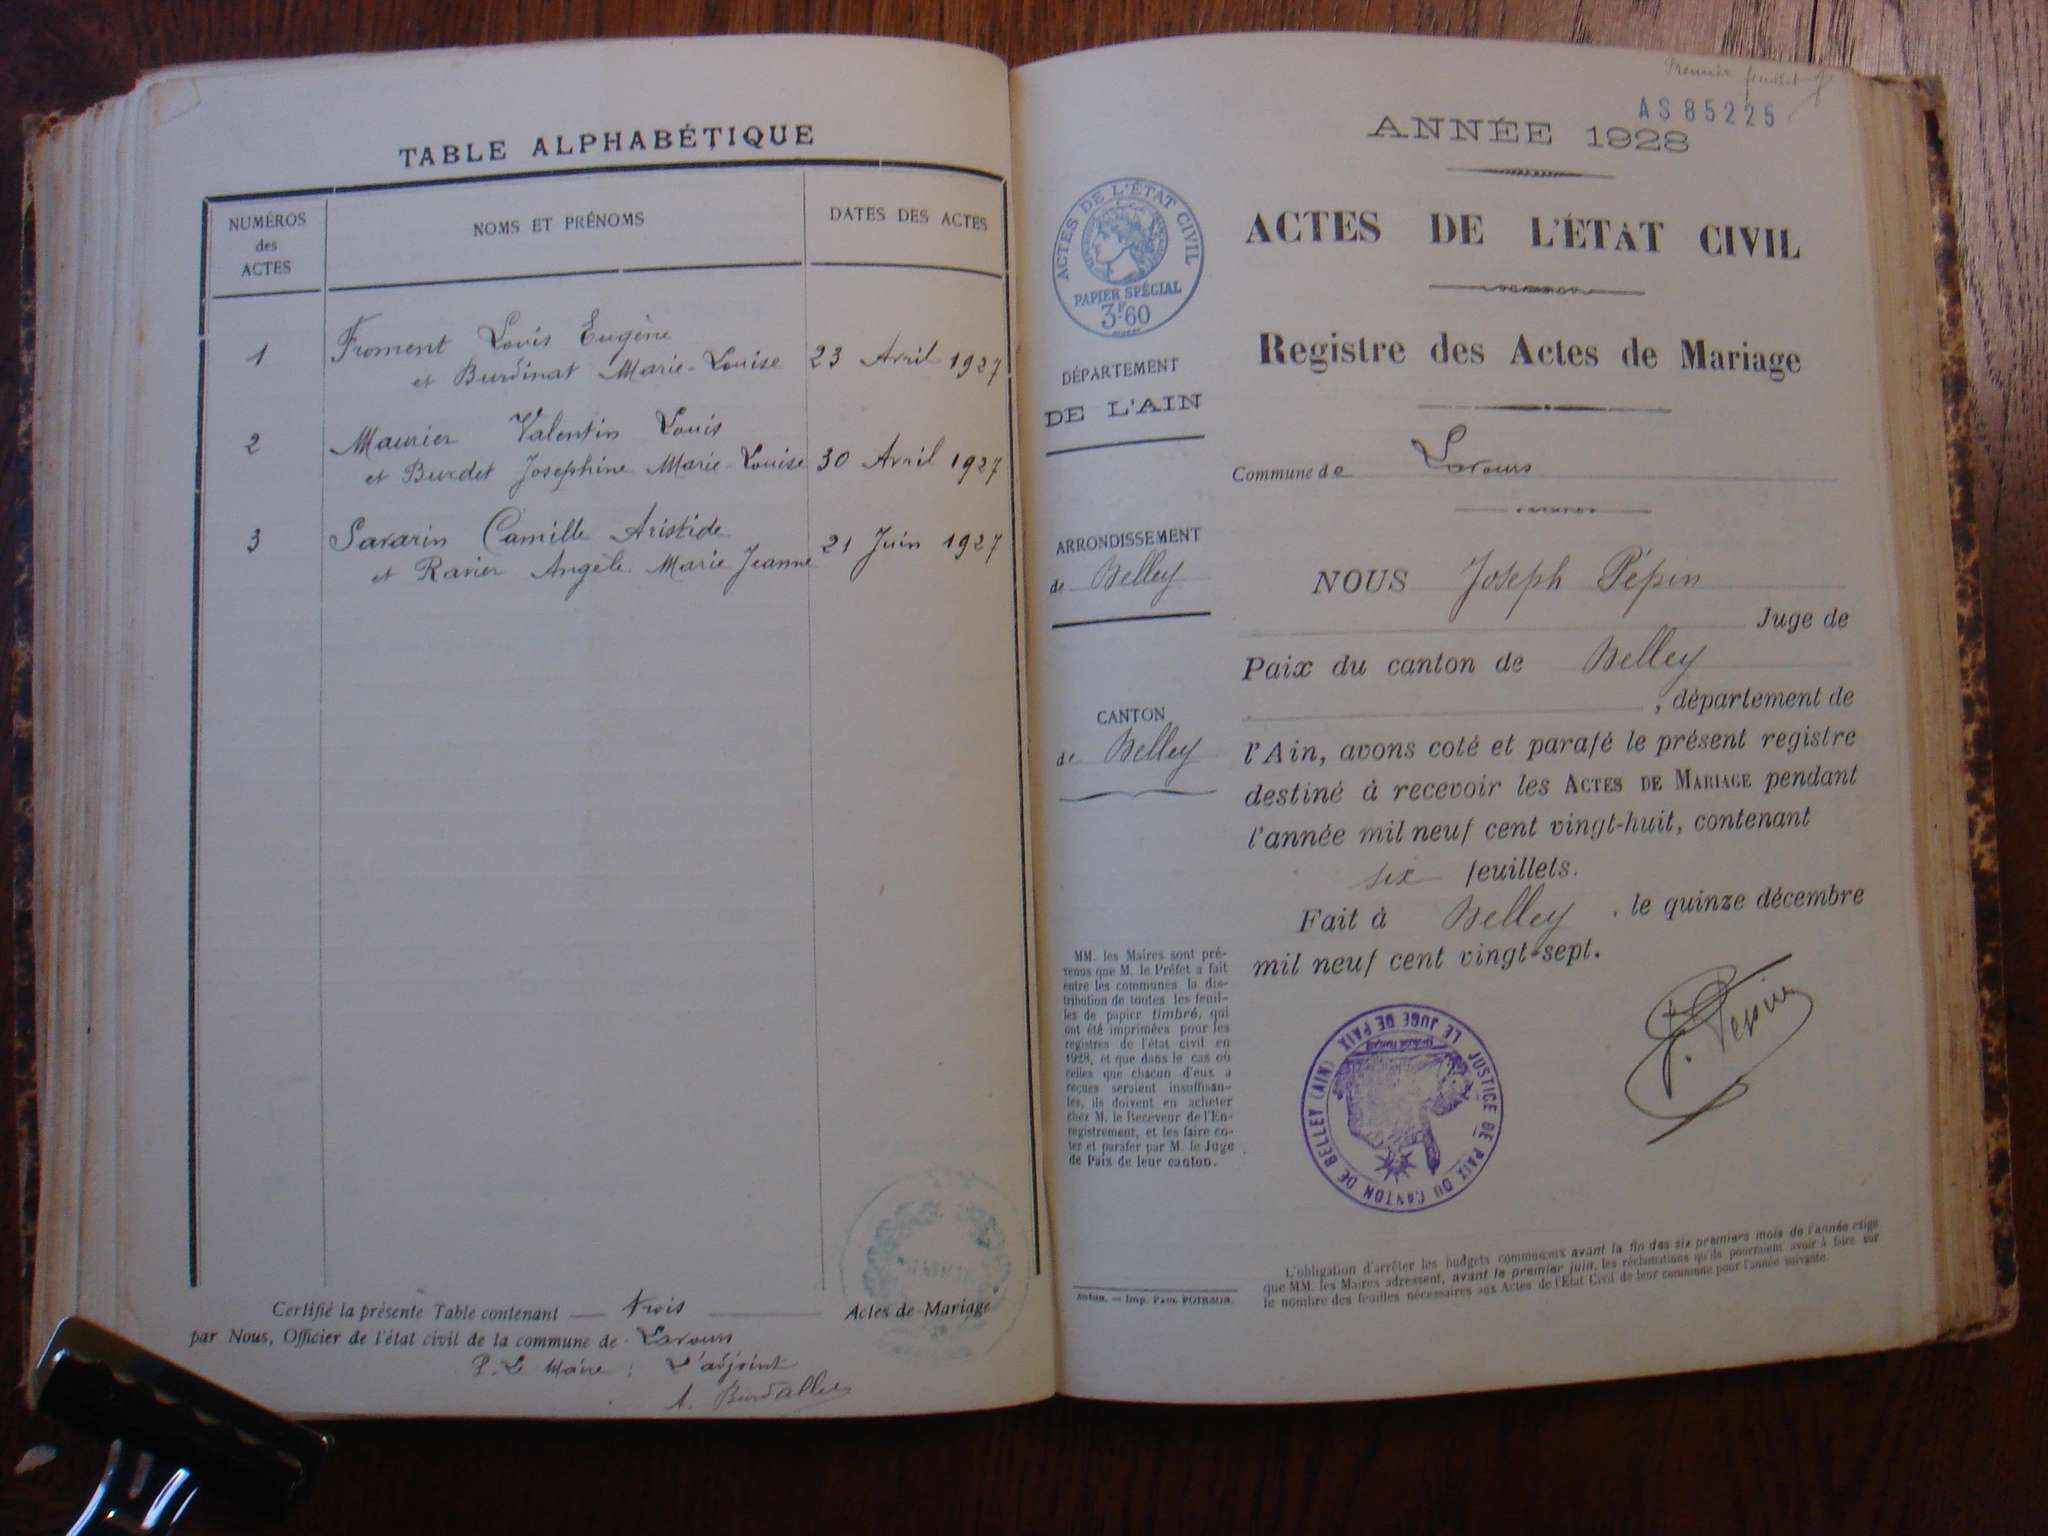 TABLE ALPHABÉTIQUE
NUMÉROS
des
ACTES
NOMS ET PRÉNOMS
DATES DES ACTES
1
Froment Louis Eugène
et Burdinat Marie-Louise
23 Avril 1927
2
Maurier Valentin Louis
et Burdet Josephine Marie-Louise
30 Avril 1927
3
Savarin Camille Aristide
et Ravier Angèle Marie Jeanne
21 Juin 1927
Certifié la présente Table contenant trois Actes de Mariage
par Nous, Officier de l'état civil de la commune de Lavours
P. Le Maire : L'adjoint
A. Burdallet
Premier feuillet
AS 85225
ANNÉE 1928
ACTES DE L'ÉTAT CIVIL
PAPIER SPÉCIAL
3F60
ACTES DE L'ÉTAT CIVIL
Registre des Actes de Mariage
DÉPARTEMENT
DE L'AIN
Commune de Lavours
ARRONDISSEMENT
de Belley
CANTON
de Belley
NOUS Joseph Pépin
Juge de
Paix du canton de Belley
, département de
l'Ain, avons coté et parafé le présent registre
destiné à recevoir les ACTES DE MARIAGE pendant
l'année mil neuf cent vingt-huit, contenant
six feuillets.
Fait à Belley, le quinze décembre
mil neuf cent vingt-sept.
J. Pépin
JUSTICE DE PAIX DU CANTON DE BELLEY (AIN)
LE JUGE DE PAIX
MM. les Maires sont pré-
venus que M. le Préfet a fait
entre les communes la dis-
tribution de toutes les feuil-
les de papier timbré, qui
ont été imprimées pour les
registres de l'état civil en
1928, et que dans le cas où
celles que chacun d'eux a
reçues seraient insuffisan-
tes, ils doivent en acheter
chez M. le Receveur de l'En-
registrement, et les faire co-
ter et parafer par M. le Juge
de Paix de leur canton.
Autun. — Imp. PAUL POIRSON.
L'obligation d'arrêter les budgets communaux avant la fin des six premiers mois de l'année exige
que MM. les Maires adressent, avant le premier juin, les réclamations qu'ils pourraient avoir à faire sur
le nombre des feuilles nécessaires aux Actes de l'État Civil de leur commune pour l'année suivante.